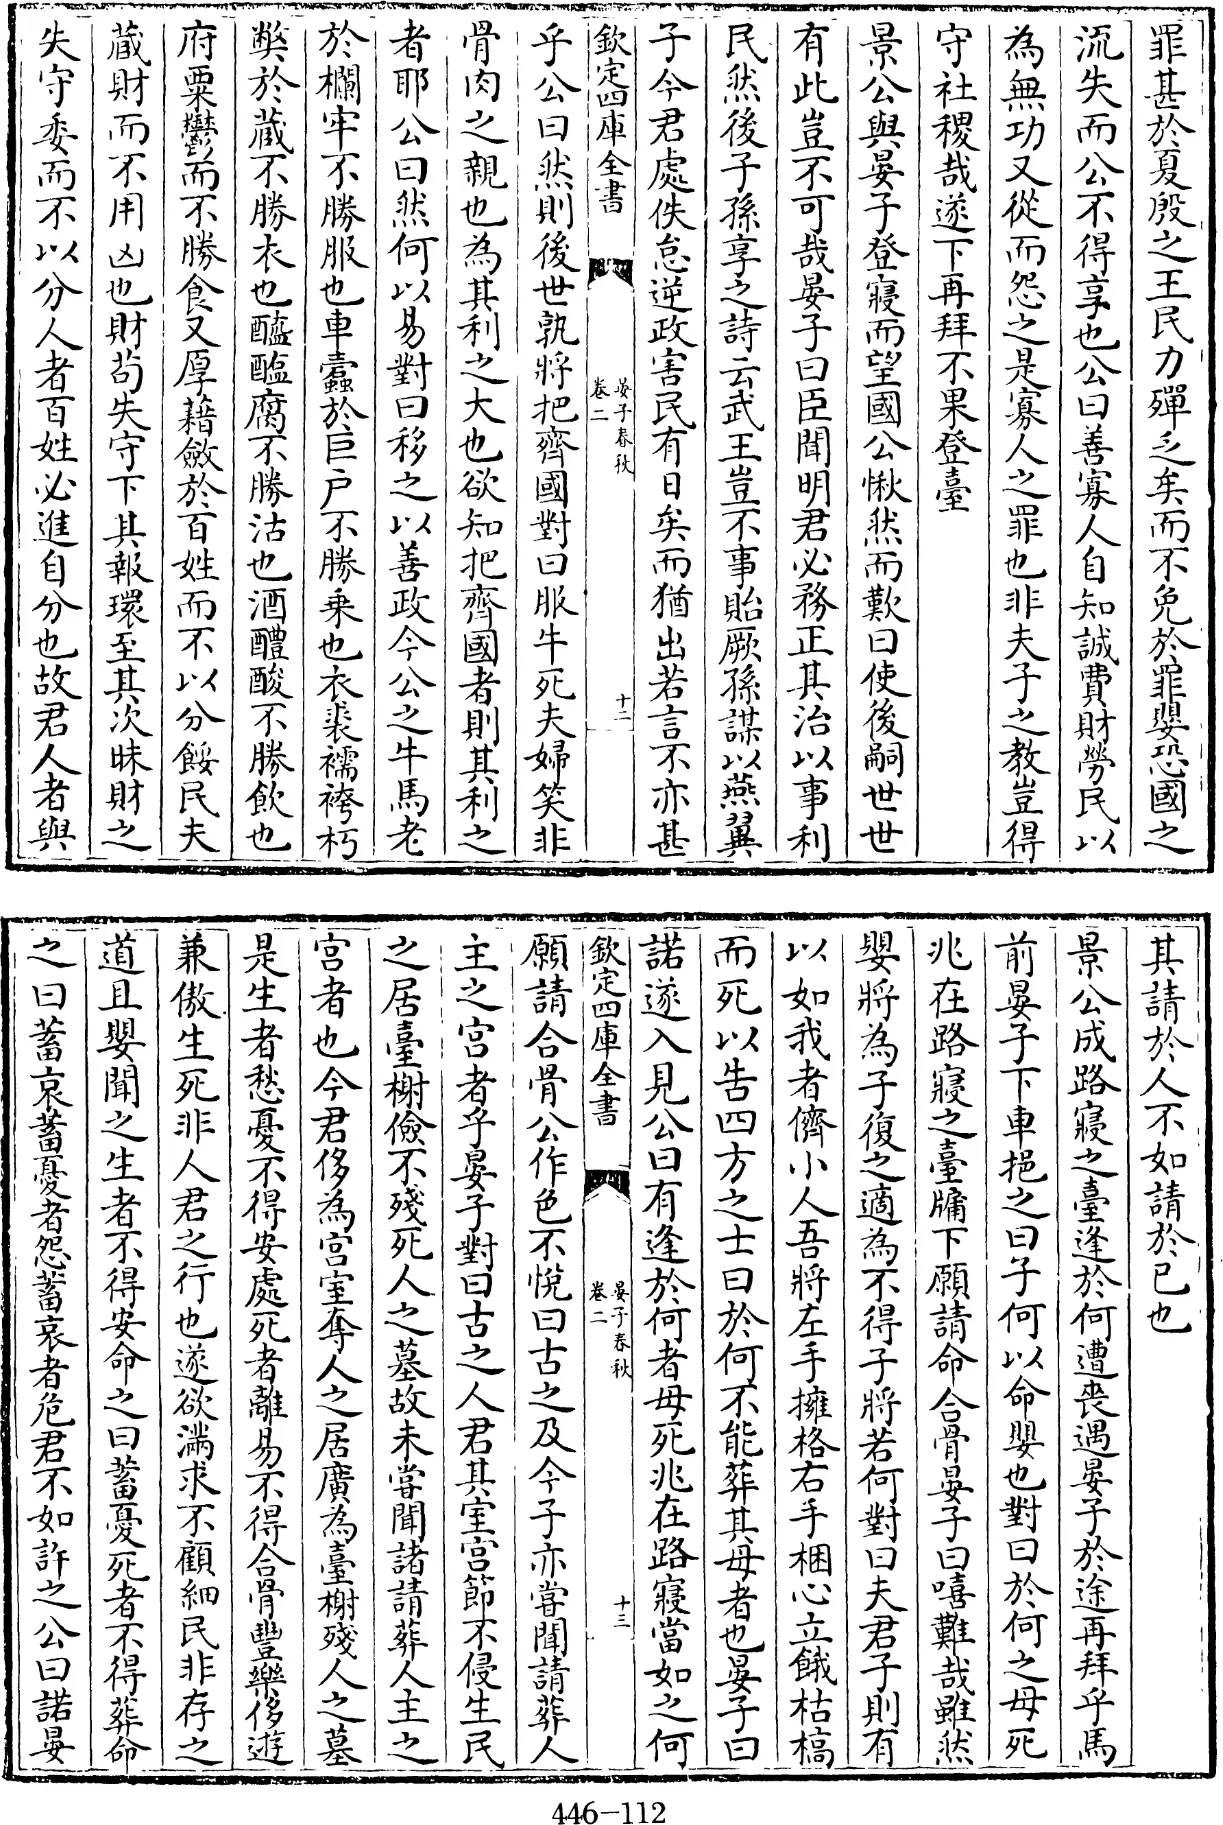 罪甚於夏殷之王民力殫乏矣而不免於罪嬰恐國之
流失而公不得享也公曰善寡人自知誠費財勞民以
為無功又從而怨之是寡人之罪也非夫子之教豈得
守社稷哉遂下再拜不果登臺
景公與晏子登寢而望國公愀然而歎曰使後嗣世世
有此豈不可哉晏子曰臣聞明君必務正其治以事利
民然後子孫享之詩云武王豈不事貽厥孫謀以燕翼
子今君處佚怠逆政害民有日矣而猶出若言不亦甚
欽定四庫全書
晏子春秋
卷二
十二
乎公曰然則後世孰將把齊國對曰服牛死夫婦笑非
骨肉之親也為其利之大也欲知把齊國者則其利之
者耶公曰然何以易對曰移之以善政今公之牛馬老
於欄牢不勝服也車蠹於巨户不勝乗也衣裘襦袴朽
獘於藏不勝衣也醯醢腐不勝沽也酒醴酸不勝飲也
府粟鬱而不勝食又厚藉斂於百姓而不以分餒民夫
藏財而不用凶也財茍失守下其報環至其次昧財之
失守委而不以分人者百姓必進自分也故君人者與
其請於人不如請於已也
景公成路寢之臺逢於何遭喪遇晏子於途再拜乎馬
前晏子下車挹之曰子何以命嬰也對曰於何之母死
兆在路寢之臺牗下願請命合骨晏子曰嘻難哉雖然
嬰將為子復之適為不得子將若何對曰夫君子則有
以如我者儕小人吾將左手擁格右手梱心立餓枯槁
而死以告四方之士曰於何不能葬其母者也晏子曰
諾遂入見公曰有逢於何者母死兆在路寢當如之何
欽定四庫全書
晏子春秋
卷二
十三
願請合骨公作色不恱曰古之及今子亦甞聞請葬人
主之宮者乎晏子對曰古之人君其室宮節不侵生民
之居臺榭儉不殘死人之墓故未甞聞諸請葬人主之
宮者也今君侈為宮室奪人之居廣為臺榭殘人之墓
是生者愁憂不得安處死者離易不得合骨豐樂侈遊
兼傲生死非人君之行也遂欲滿求不顧細民非存之
道且嬰聞之生者不得安命之曰蓄憂死者不得葬命
之曰蓄哀蓄憂者怨蓄哀者危君不如許之公曰諾晏
446-112